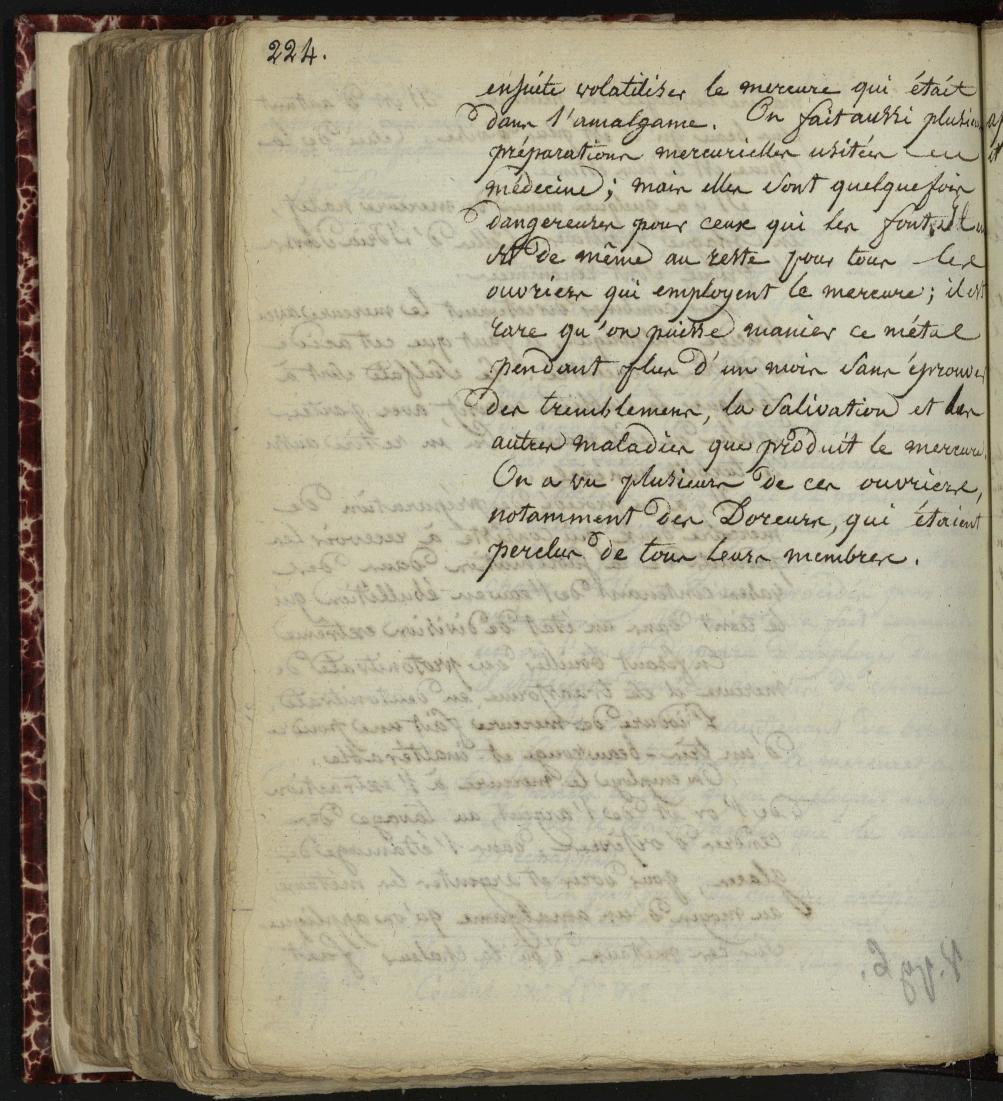 224.
ensuite volatiliser le mercure qui était
dans l'amalgame. On fait aussi plusieurs
préparations mercurielles usitées en
médecine; mais elles sont quelquefois
dangereuses pour ceux qui les font. Il en
est de même au reste pour tous les
ouvriers qui employent le mercure; il est
rare qu'on puisse manier ce métal
pendant plus d'un mois sans éprouver
des tremblemens, la salivation et les
autres maladies que produit le mercure.
On a vu plusieurs de ces ouvriers,
notamment des Doreurs, qui étaient
perclus de tous leurs membres.